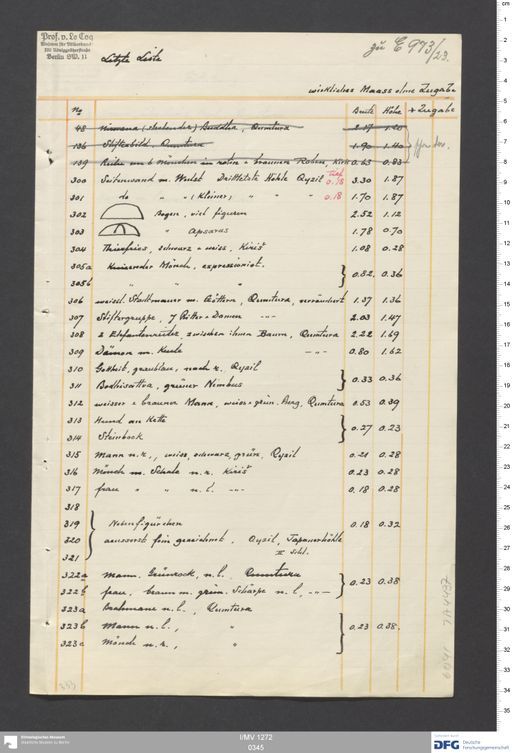 Prof. v. Le Coq
Museum für Völkerkunde
Königgrätzerstraße
Berlin SW. 11
Letzte Liste
zu E 973/23.
wirkliches Maass ohne Zugabe
No Breite Höhe + Zugabe
48 Nirvana (stehender) Buddha, Qumtura 1.20
136 Stifterbild, Qumtura 1.90 1.40
139 Reihe von 6 Mönchen in roten u. braunen Roben, Kiriš 0.63 0.83
300 Seitenwand m. Wulst Drittletzte Höhle Qyzil tief 0.18 3.30 1.87
301 do " " (kleiner) " " " 0.18 1.70 1.87
302 Bogen, viel figuren 2.52 1.12
303 " Apsaras 1.78 0.70
304 Thierfries, schwarz u. weiss, Kiriš 1.08 0.28
305a Knieender Mönch, expressionist.
305b " " " 0.52 0.36
306 weissl. Stadtmauer m. Göttern, Qumtura, verräuchert 1.37 1.36
307 Stiftergruppe, 7 Ritter u. Damen -"- 2.03 1.47
308 2 Elefantenreiter, zwischen ihnen Baum, Qumtura 2.22 1.69
309 Dämon m. Keule -"- 0.80 1.62
310 Gottheit, graublau, nach r. Qyzil
311 Bodhisattva, grüner Nimbus 0.33 0.36
312 weisser u. brauner Mann, weiss u. grün. Berg, Qumtura 0.53 0.39
313 Hund an Kette
314 Steinbock 0.27 0.23
315 Mann n. r., weiss, schwarz, grün, Qyzil 0.21 0.28
316 Mönch m. Schale n. r. Kiriš 0.23 0.28
317 frau " " n. l. -"- 0.18 0.28
318
319 Nebenfigürchen 0.18 0.32
320 äusserst fein gezeichnet. Qyzil, Japanerhöhle
321 II Schl.
322a Mann. Grünrock, n. l. Qumtura
322b frau, braun m. grün. Schärpe n. l., -"- 0.23 0.38
323a Brahmane n. l., Qumtura
323b Mann n. l., " 0.23 0.38.
323c Mönch n. r., "
Ethnologisches Museum
Staatliche Museen zu Berlin
I/MV 1272
0345
DFG Deutsche
Forschungsgemeinschaft
cm
1
2
3
4
5
6
7
8
9
10
11
12
13
14
15
16
17
18
19
20
21
22
23
24
25
26
27
28
29
30
31
32
33
34
35